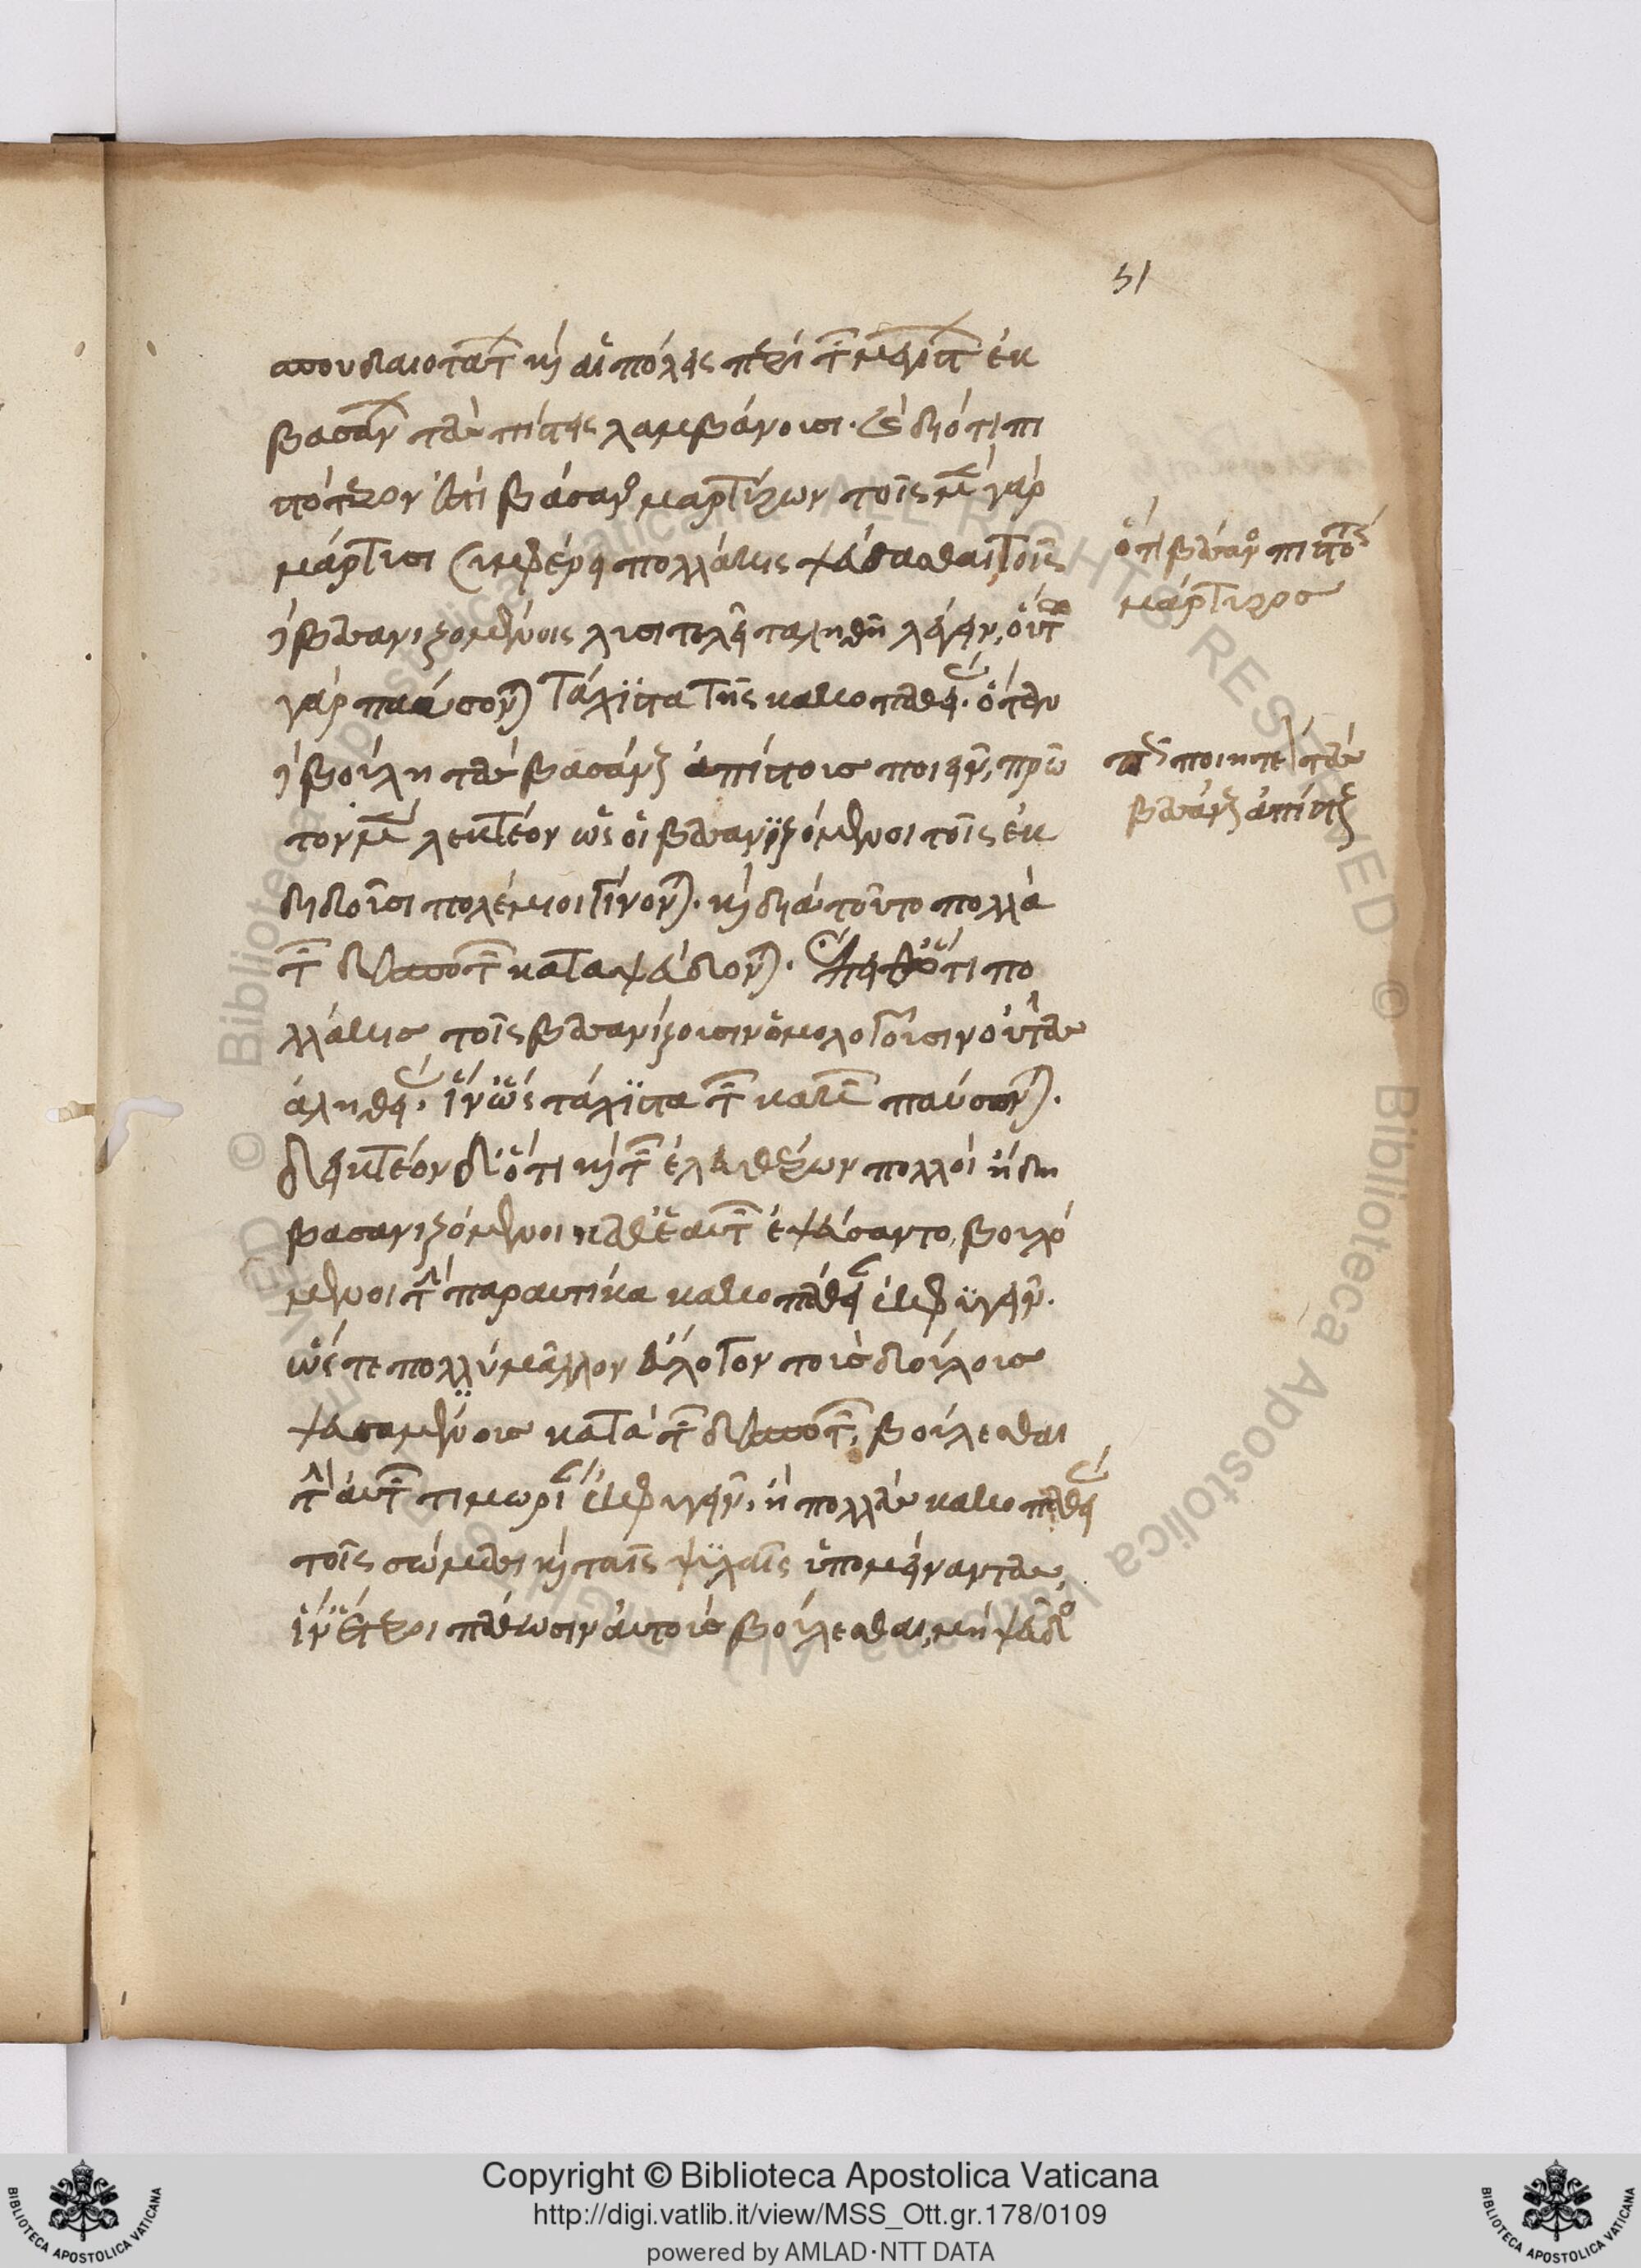 51
σπουδαιοτάτων καὶ αἱ πόλεις περὶ τῶν μεγίστων ἐκ
βασάνων τὰς πίστεις λαμβάνουσι. καὶ διότι πι
στότερόν ἐστι βάσανος μαρτύρων· τοῖς μὲν γὰρ
μάρτυσι συμφέρει πολλάκις ψεύσασθαι, τοῖς
δὲ βασανιζομένοις λυσιτελεῖ τἀληθῆ λέγειν, οὕτω
γὰρ παύσονται τάχιστα τῆς κακοπαθείας. ὅταν
δὲ βούλῃ τὰς βασάνους ἀπίστους ποιεῖν, πρῶ
τον μὲν λεκτέον ὡς οἱ βασανιζόμενοι τοῖς ἐκ
διδοῦσι πολέμιοι γίνονται. καὶ διὰ τοῦτο πολλὰ
τῶν δεσποτῶν καταψεύδονται. ἔπειθ' ὅτι πο
λλάκις τοῖς βασανίζουσιν ὁμολογοῦσιν οὐ τὰς
ἀληθείας, ἵν' ὡς τάχιστα τῶν κακῶν παύσωνται.
δεικτέον δ' ὅτι καὶ τῶν ἐλευθέρων πολλοὶ ἤδη
βασανιζόμενοι καθ' ἑαυτῶν ἐψεύσαντο, βουλό
μενοι τὴν παραυτίκα κακοπάθειαν ἐκφυγεῖν.
ὥστε πολὺ μᾶλλον εὔλογον τοὺς δούλους
ψευσαμένους κατὰ τῶν δεσποτῶν, βούλεσθαι
τὴν αὑτῶν τιμωρίαν ἐκφυγεῖν, ἢ πολλὰς κακοπαθείας
τοῖς σώμασι καὶ ταῖς ψυχαῖς ὑπομείναντας,
ἵν' ἕτεροι παθῶσιν αὐτοὺς βούλεσθαι, μὴ ψεῦδος
ὅτι βάσανος πιστότερος
μάρτυρος
πῶς ποιητέον τὰς
βασάνους ἀπίστους
Copyright © Biblioteca Apostolica Vaticana
http://digi.vatlib.it/view/MSS_Ott.gr.178/0109
powered by AMLAD·NTT DATA